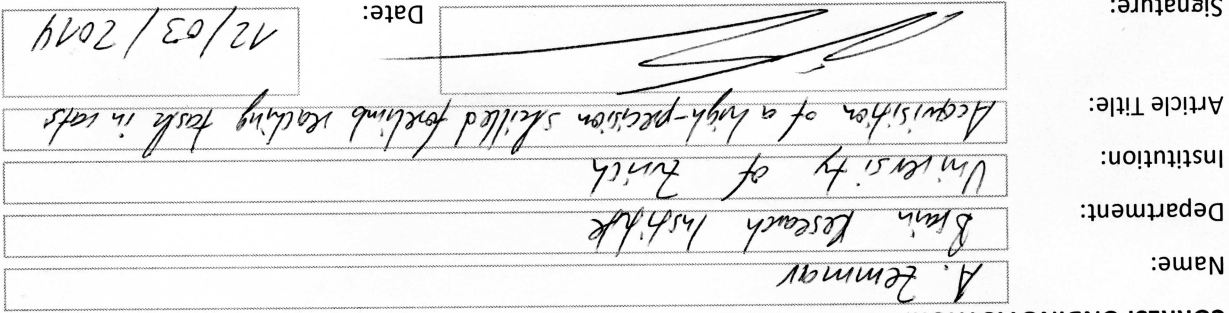 CORRESPONDING AUTHOR
Name: A. Zemmar
Department: Brain Research Institute
Institution: University of Zurich
Article Title: Acquisition of a high-precision skilled forelimb reaching task in rats
Signature: Date: 12/03/2014